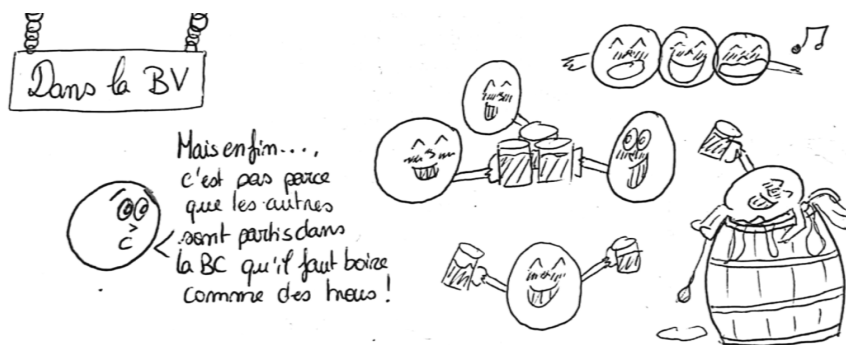 Dans la BV
Mais enfin....,
c'est pas parce
que les autres
sont partis dans
la BC qu'il faut boire
comme des trous !